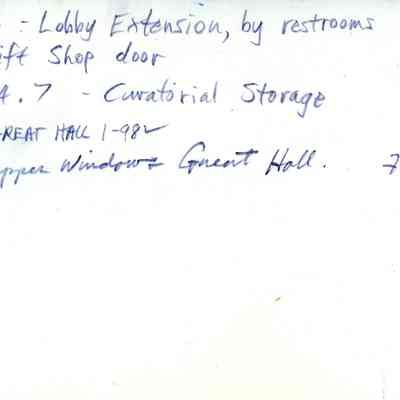 - Lobby Extension, by restrooms
ift Shop door
4.7 - Curatorial Storage
REAT HALL 1-98✓
pper Windows Great Hall. 7